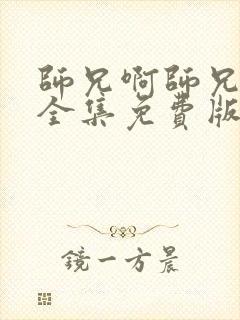 師兄啊師兄
全集免費版
鏡一方晨